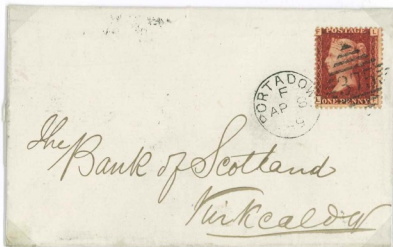 POSTAGE
ONE PENNY
PORTADOWN
F
AP 8
The
Bank of Scotland
Kirkcaldy